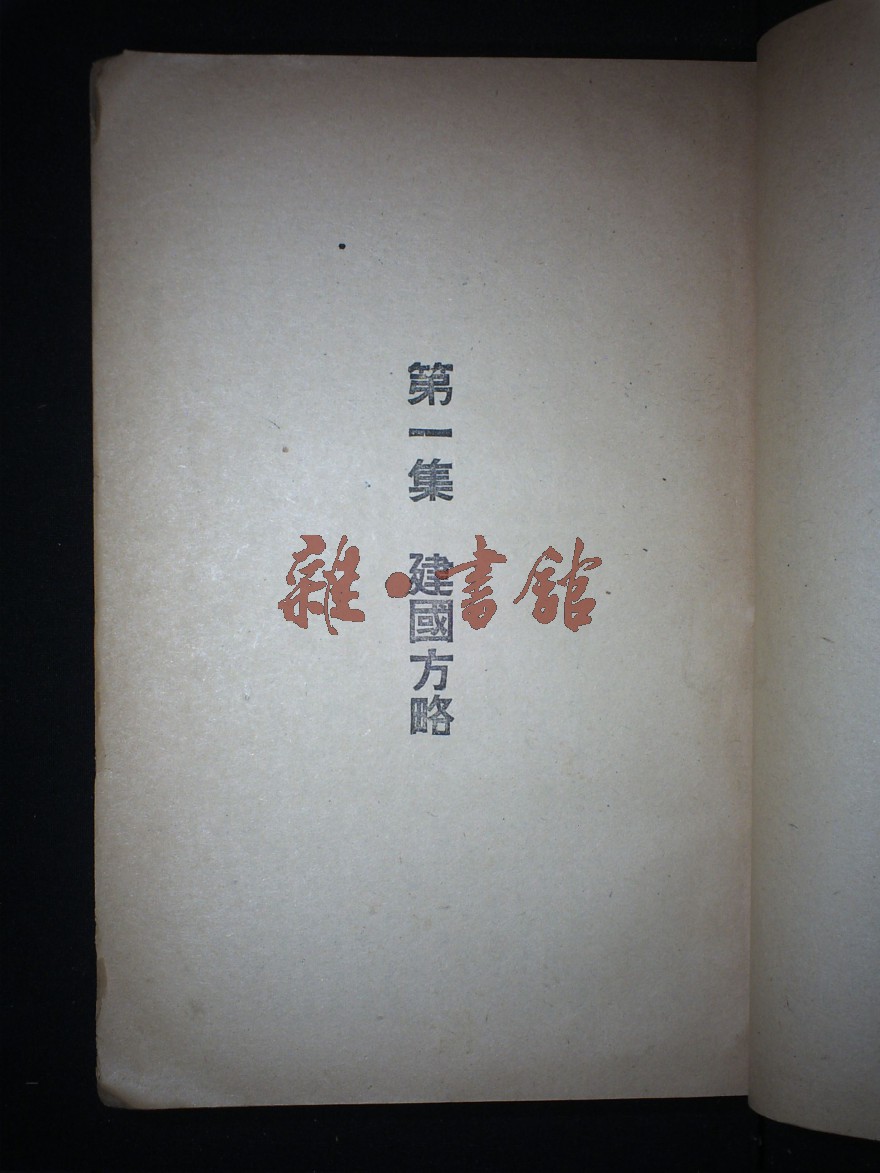 第一集 建國方略
雜·書館